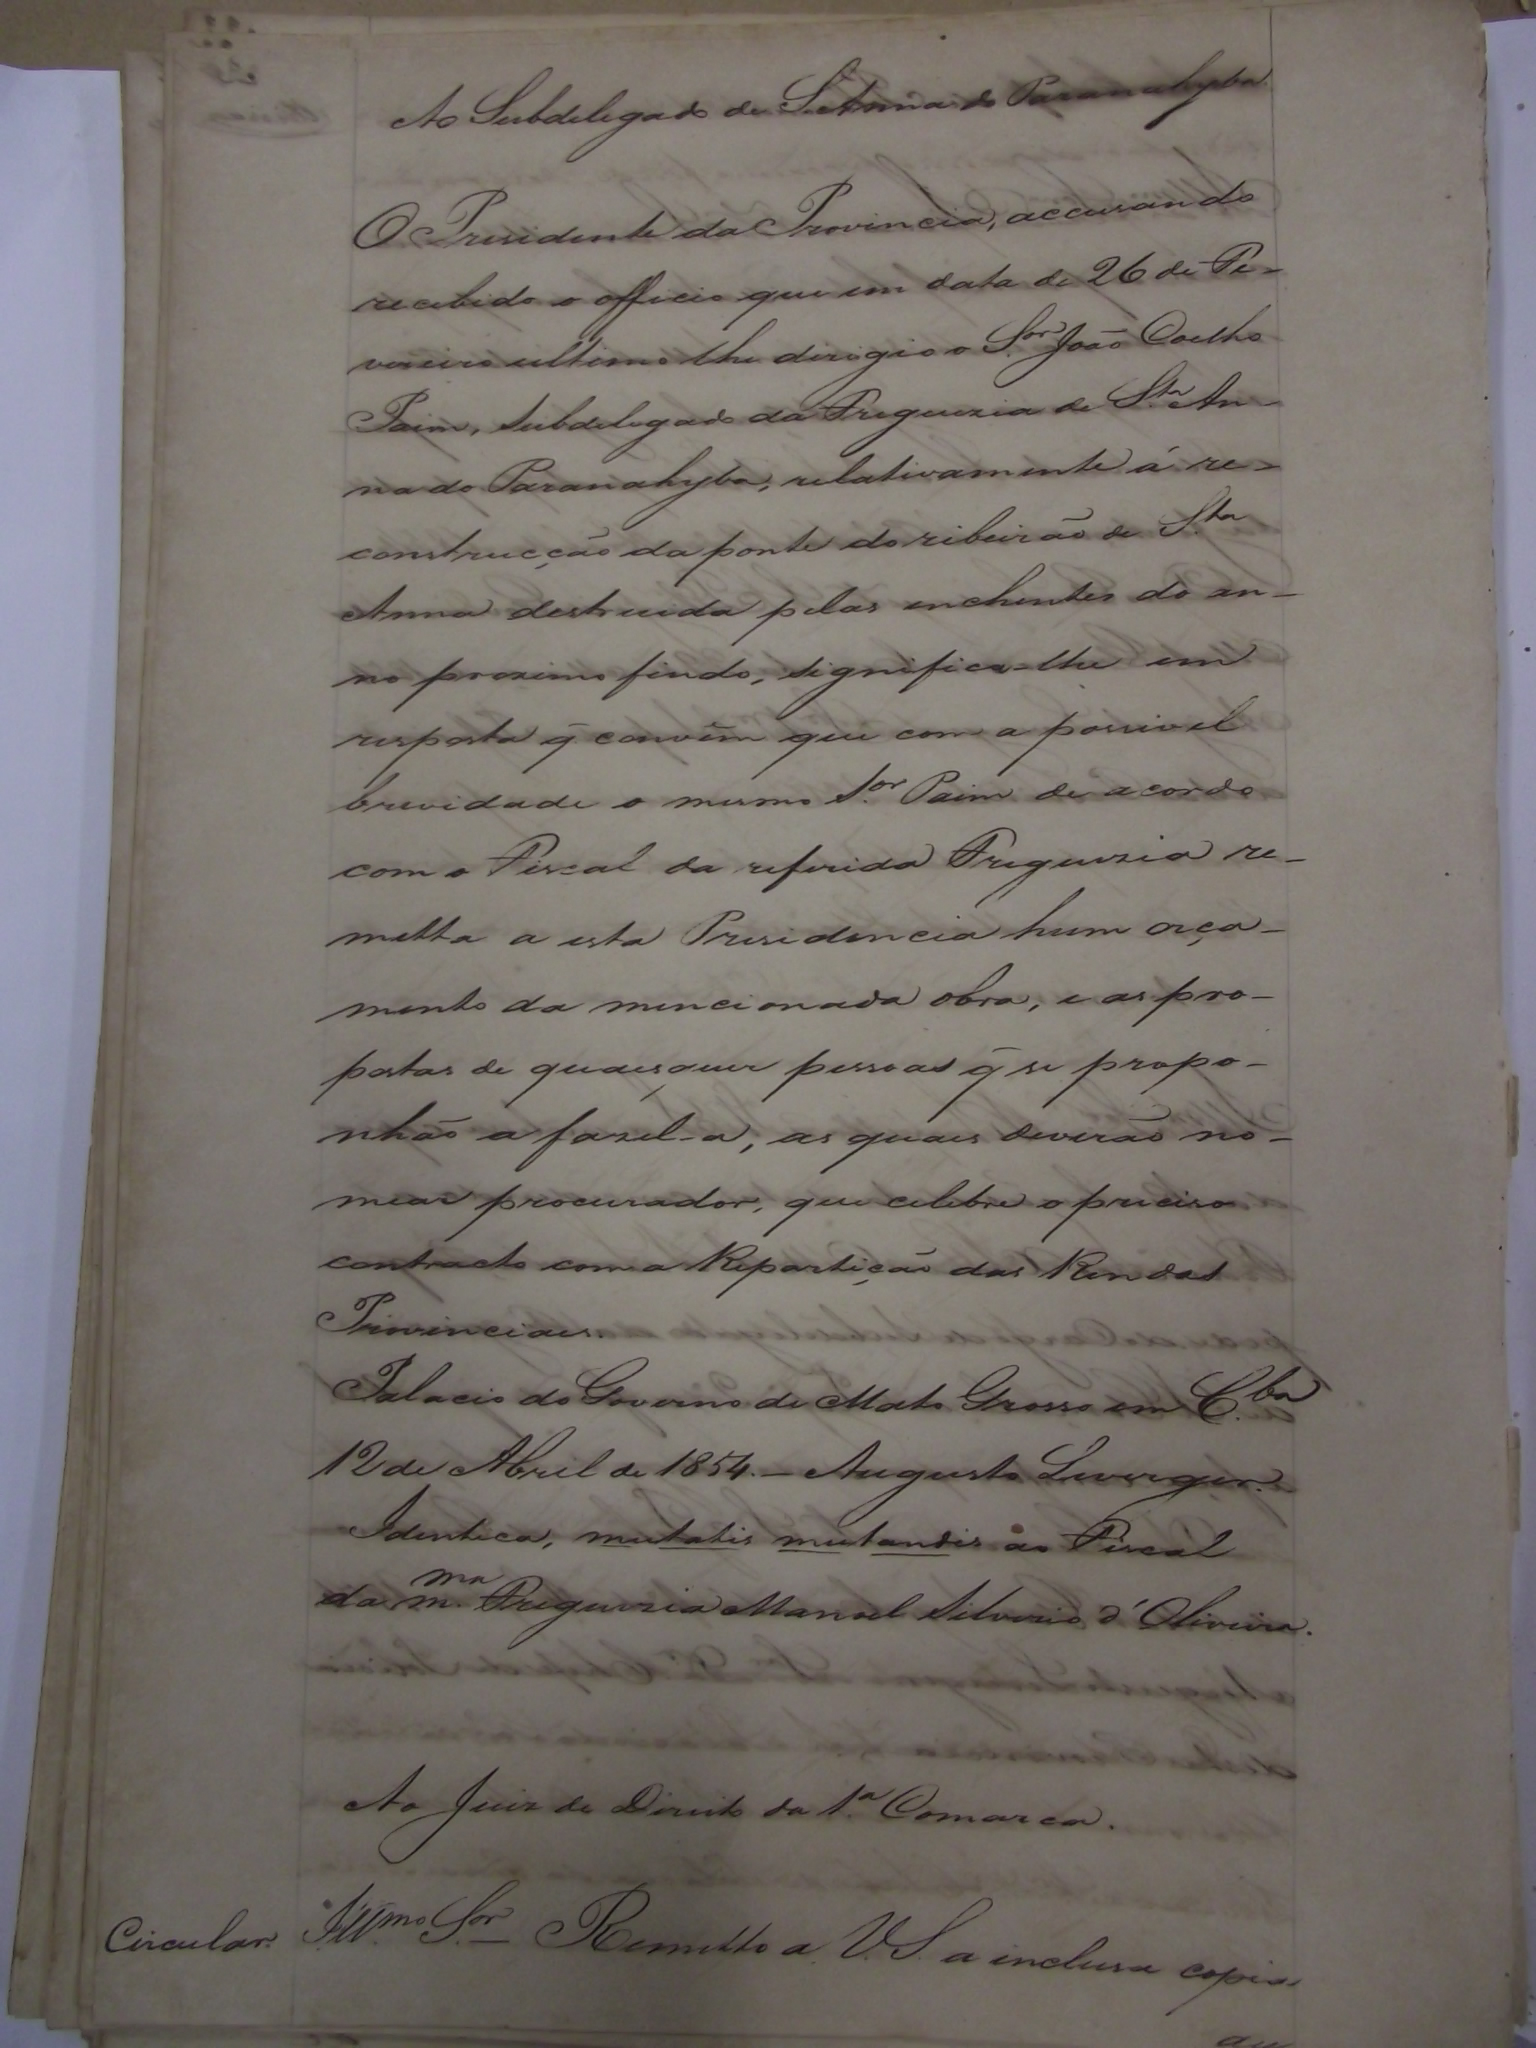 Ao Subdelegado de S. Anna do Paranahyba.
O Presidente da Provincia, accusando
recebido o officio que em data de 26 de Fe-
vereiro ultimo lhe dirigio o S.or João Coelho
Paim, Subdelegado da Freguezia de S.ta An-
na do Paranahyba, relativamente á re-
construcção da ponte do ribeirão de S.ta
Anna destruida pelas enchentes do an-
no proximo findo, significa-lhe em
resposta q̃ convêm que com a possivel
brevidade o mesmo S.or Paim de acordo
com o Fiscal da referida Freguezia re-
metta a esta Presidencia hum orça-
mento da mencionada obra, e as pro-
postas de quaesquer pessoas q̃ se propo-
nhão a fazel-a, as quaes deverão no-
mear procurador, que celebre o preciso
contracto com a Repartição das Rendas
Provinciaes.
Palacio do Governo de Mato Grosso em C.ba
12 de Abril de 1854. _ Augusto Leverger.
Identica, mutatis mutandis ao Fiscal
da m.ma Freguezia Manoel Silverio d'Oliveira.
Ao Juiz de Direito da 1.a Comarca.
Circular. Ill.mo S.or _ Remetto a V.S. a inclusa copia